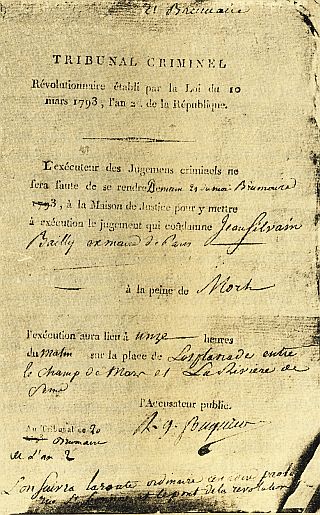 21 Brumaire
TRIBUNAL CRIMINEL
Révolutionnaire établi par la Loi du 10
mars 1793, l'an 2d. de la République.
L'exécuteur des Jugemens criminels ne
fera faute de se rendre Demain 21 du mois Brumaire
, à la Maison de Justice pour y mettre
à exécution le jugement qui condamne Jean Silvain
Bailly ex maire de Paris
à la peine de Mort
l'exécution aura lieu à unze heures
du matin sur la place de L'esplanade entre
le champ de Mars et La Rivière de
Seine
l'Accusateur public.
Au Tribunal ce 20
Brumaire
l'an 2
L'on suivra la route ordinaire
et le pont de la revolution